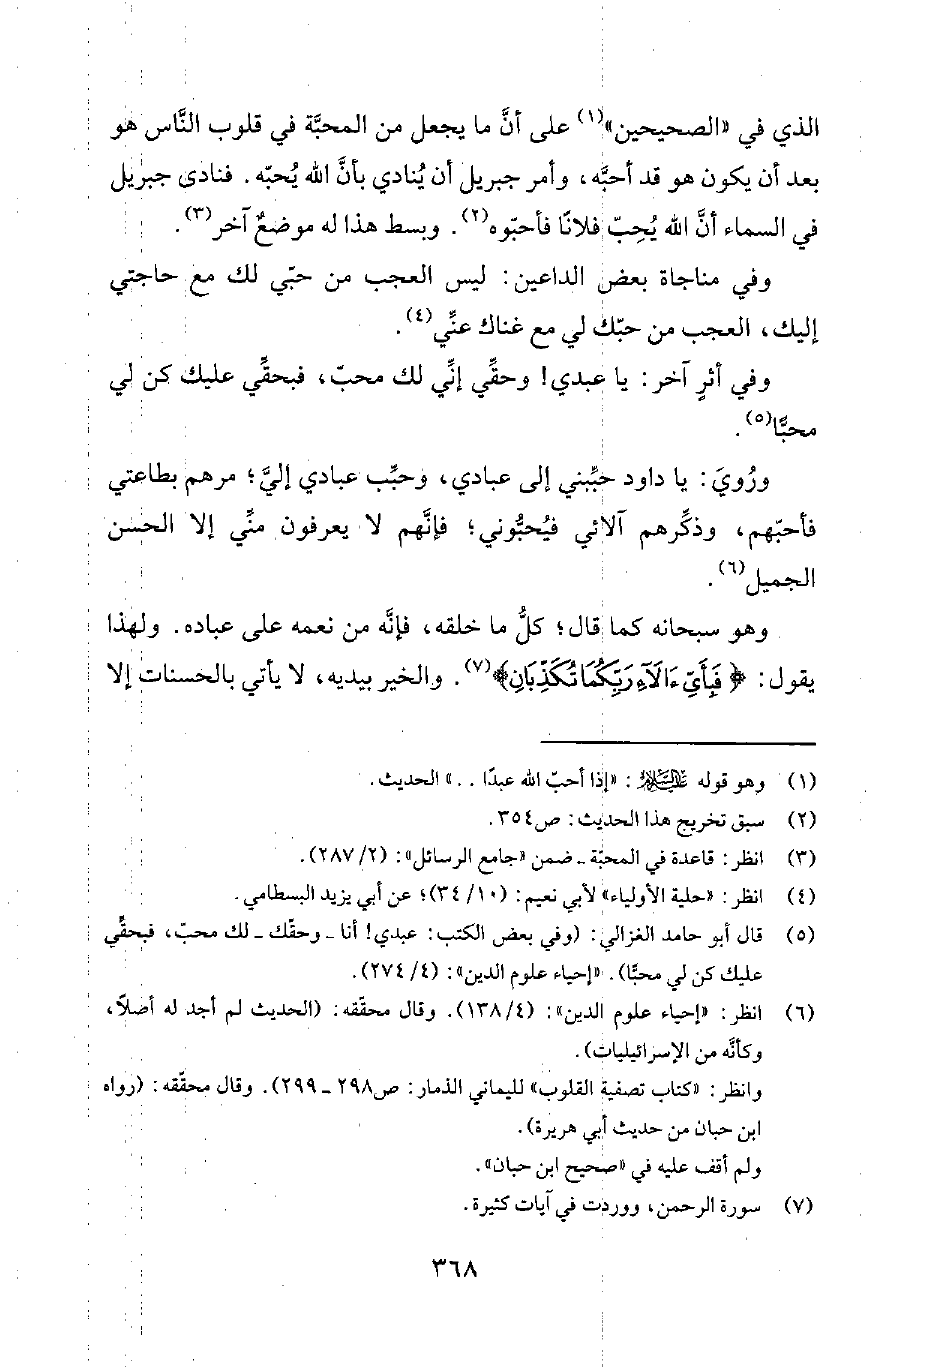 الذي في «الصحيحين»(١) على أنَّ ما يجعل من المحبَّة في قلوب النَّاس هو
بعد أن يكون هو قد أحبَّه، وأمر جبريل أن يُنادي بأنَّ الله يُحبّه. فنادى جبريل
في السماء أنَّ الله يُحِبّ فلانًا فأحبّوه(٢). وبسط هذا له موضعٌ آخر(٣).
وفي مناجاة بعض الداعين: ليس العجب من حبّي لك مع حاجتي
إليك، العجب من حبّك لي مع غناك عنِّي(٤).
وفي أثرٍ آخر: يا عبدي! وحقِّي إنِّي لك محبّ، فبحقِّي عليك كن لي
محبًّا(٥).
ورُويَ: يا داود حبِّبني إلى عبادي، وحبِّب عبادي إليَّ؛ مرهم بطاعتي
فأحبّهم، وذكِّرهم آلائي فيُحبُّوني؛ فإنَّهم لا يعرفون منِّي إلا الحسن
الجميل(٦).
وهو سبحانه كما قال؛ كلُّ ما خلقه، فإنَّه من نعمه على عباده. ولهذا
يقول: ﴿فَبِأَيِّ ءَالَآءِ رَبِّكُمَا تُكَذِّبَانِ﴾(٧). والخير بيديه، لا يأتي بالحسنات إلا
(١) وهو قوله عليه السلام: «إذا أحبّ الله عبدًا . .» الحديث.
(٢) سبق تخريج هذا الحديث: ص٣٥٤.
(٣) انظر: قاعدة في المحبَّة ـ ضمن «جامع الرسائل»: (٢/ ٢٨٧).
(٤) انظر: «حلية الأولياء» لأبي نعيم: (١٠/ ٣٤)؛ عن أبي يزيد البسطامي.
(٥) قال أبو حامد الغزالي: (وفي بعض الكتب: عبدي! أنا ـ وحقّك ـ لك محبّ، فبحقِّي
عليك كن لي محبًّا). «إحياء علوم الدين»: (٤/ ٢٧٤).
(٦) انظر: «إحياء علوم الدين»: (٤/ ١٣٨). وقال محقّقه: (الحديث لم أجد له أصلاً،
وكأنَّه من الإسرائيليات).
وانظر: «كتاب تصفية القلوب» لليماني الذمار: ص٢٩٨ ـ ٢٩٩). وقال محقّقه: (رواه
ابن حبان من حديث أبي هريرة).
ولم أقف عليه في «صحيح ابن حبان».
(٧) سورة الرحمن، ووردت في آيات كثيرة.
٣٦٨